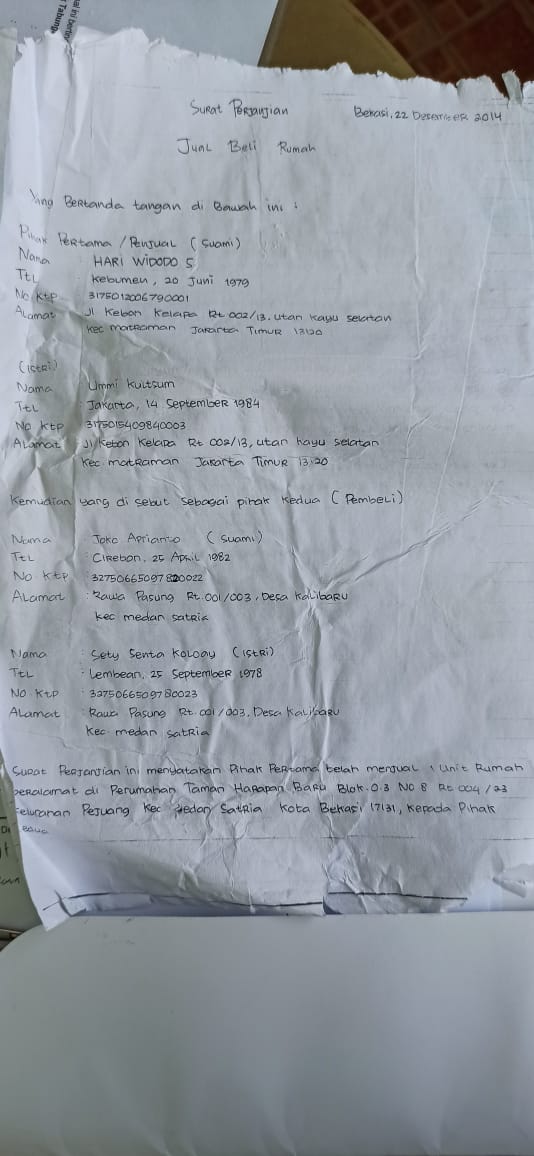 Surat Perjanjian
Bekasi, 22 Desember 2014
Jual Beli Rumah
Yang Bertanda tangan di Bawah ini :
Pihak Pertama / Penjual (Suami)
Nama HARI WIDODO S
TtL Kebumen, 20 Juni 1979
No Ktp 3175012006790001
Alamat Jl Kebon Kelapa Rt 002/13. Utan Kayu Selatan
Kec Matraman Jakarta Timur 13120
(Istri)
Nama : Ummi Kultsum
TtL : Jakarta, 14 September 1984
No Ktp : 3175015409840003
Alamat : Jl Kebon Kelapa Rt 002/13, Utan Kayu Selatan
Kec Matraman Jakarta Timur 13120
Kemudian yang di sebut sebagai pihak kedua (Pembeli)
Nama : Joko Aprianto (Suami)
TtL : Cirebon, 25 April 1982
No Ktp : 3275066509780022
Alamat : Rawa Pasung Rt.001/003, Desa Kalibaru
Kec medan satria
Nama : Sety Senta Kology (Istri)
TtL : Lembean, 25 September 1978
No Ktp : 3275066509780023
Alamat : Rawa Pasung Rt 001/003, Desa Kalibaru
Kec medan satria
Surat Perjanjian ini menyatakan Pihak Pertama telah menjual 1 Unit Rumah
beralamat di Perumahan Taman Harapan Baru Blok.O.3 No 8 Rt 004/23
Kelurahan Pejuang Kec Medan Satria Kota Bekasi 17131, Kepada Pihak